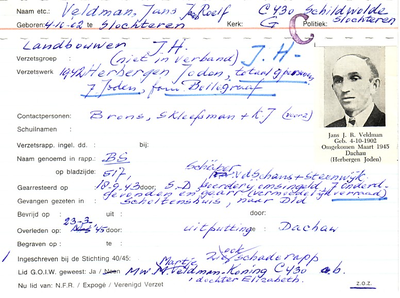 Naam etc.: Veldman, Jans Roelf C430 Schildwolde
Geboren 4-10-02 te Slochteren Kerk: G Politiek: Slochteren
C
Landbouwer J.H.
Verzetsgroep (niet in verband) J.H-
Verzetswerk 1942 Herbergen Joden, totaal 9 personen,
7 Joden, fam Bellegraaf
Contactpersonen: Brons, Kloosman + KJ
Schuilnaam :
Verzetsrapp. ingel. dd. : bij:
Naam genoemd in rapp.: BS
op bladzijde: 517, Schieber + Steenwijk
Gearresteerd op 18.9.43 door: S.D. verraad)
Gevangen gezeten in Scholtenshuis, naar Dld
Bevrijd op : uit door :
Overleden op : 23-3- '45 door: uitputting Dachau
Begraven op : te
Ingeschreven bij de Stichting 40/45: zie ook Schaderapp
Lid G.O.I.W. geweest: Ja / Neen Mw M. Veldman-Koning C430 a.b.
Nu lid van: N.F.R. / Expogé / Verenigd Verzet dochter Elizabeth. z.o.z.
Jans J. R. Veldman
Geb. 4-10-1902
Omgekomen Maart 1945
Dachau
(Herbergen Joden)